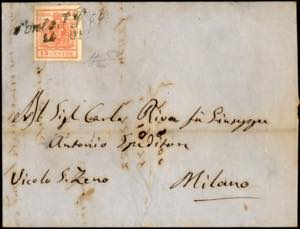 15 CENTES
Al Sigr Carlo Riva fu Giuseppe
Antonio Speditore
Vicolo S. Zeno
Milano